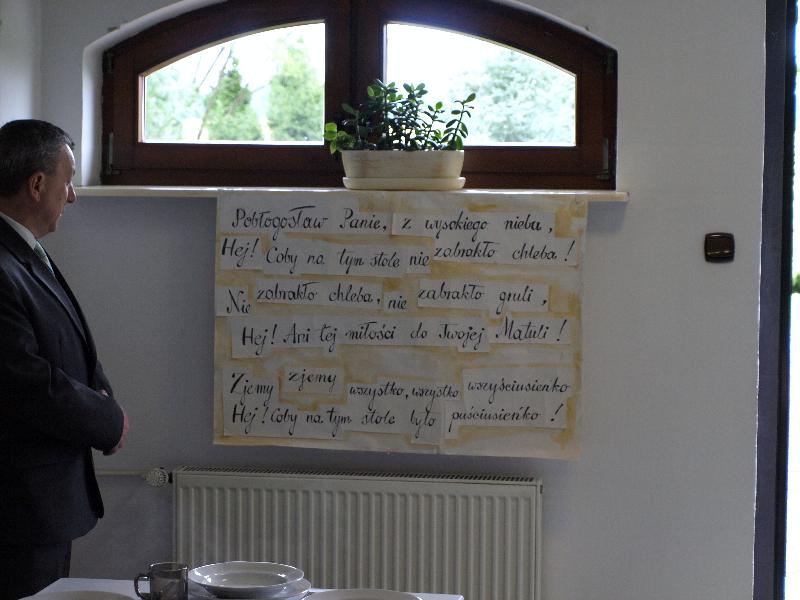 Pobłogosław Panie, z wysokiego nieba,
Hej! Coby na tym stole nie zabrakło chleba!
Nie zabrakło chleba, nie zabrakło gruli,
Hej! Ani tej miłości do Twojej Matuli!
Zjemy zjemy wszystko, wszystko wszyściusieńko
Hej! Coby na tym stole było puściusieńko!